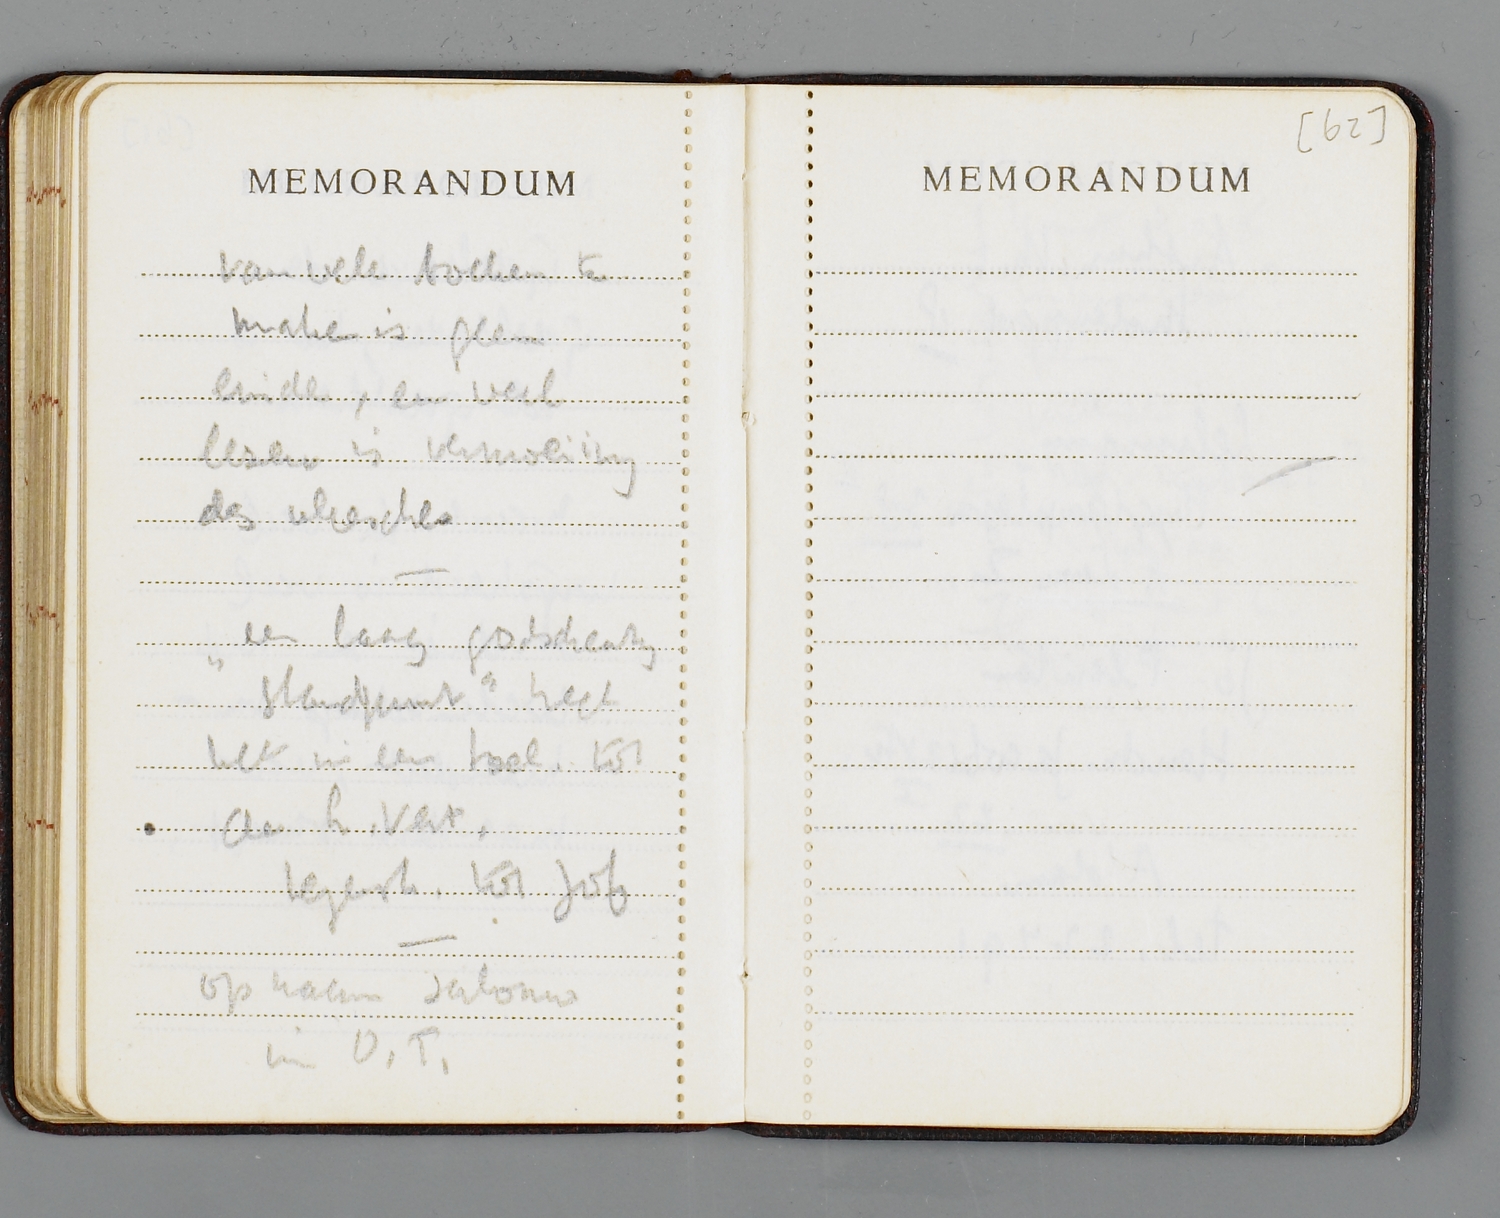 MEMORANDUM
van vele boeken te
maken is geen
einde, en veel
lezen is vermoeiing
des vleesches
—
een laag godsdienstig
„standpunt" heet
het in een
tegenst. tot Job
—
opname
in O.T.
[62]
MEMORANDUM